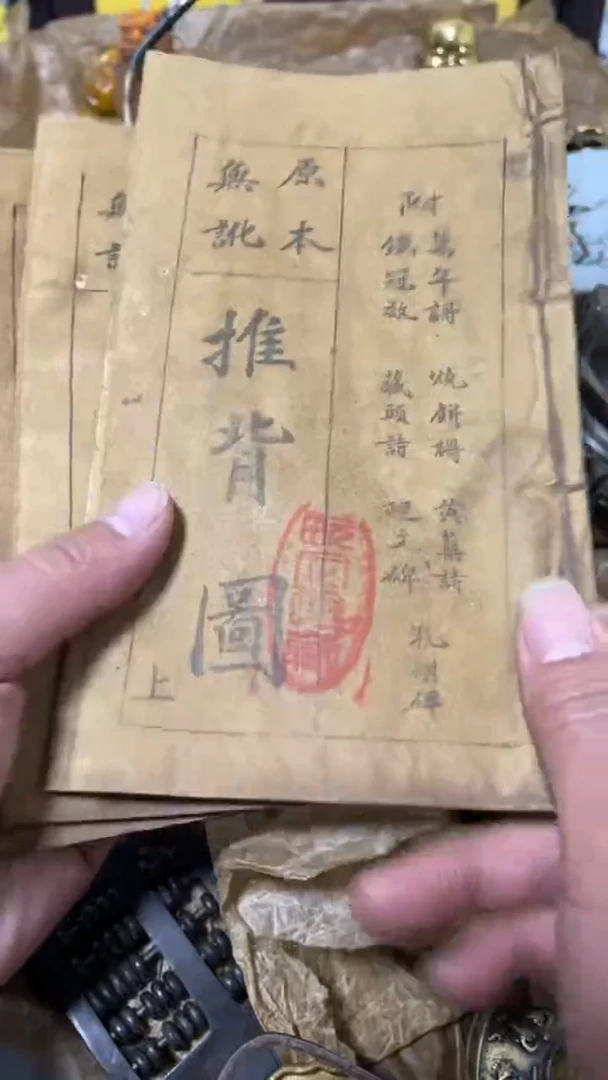 附
萬年謌 燒餅謌 黃蘗詩
鐵冠 藏頭詩
孔明碑
原本
無訛
推背圖
上